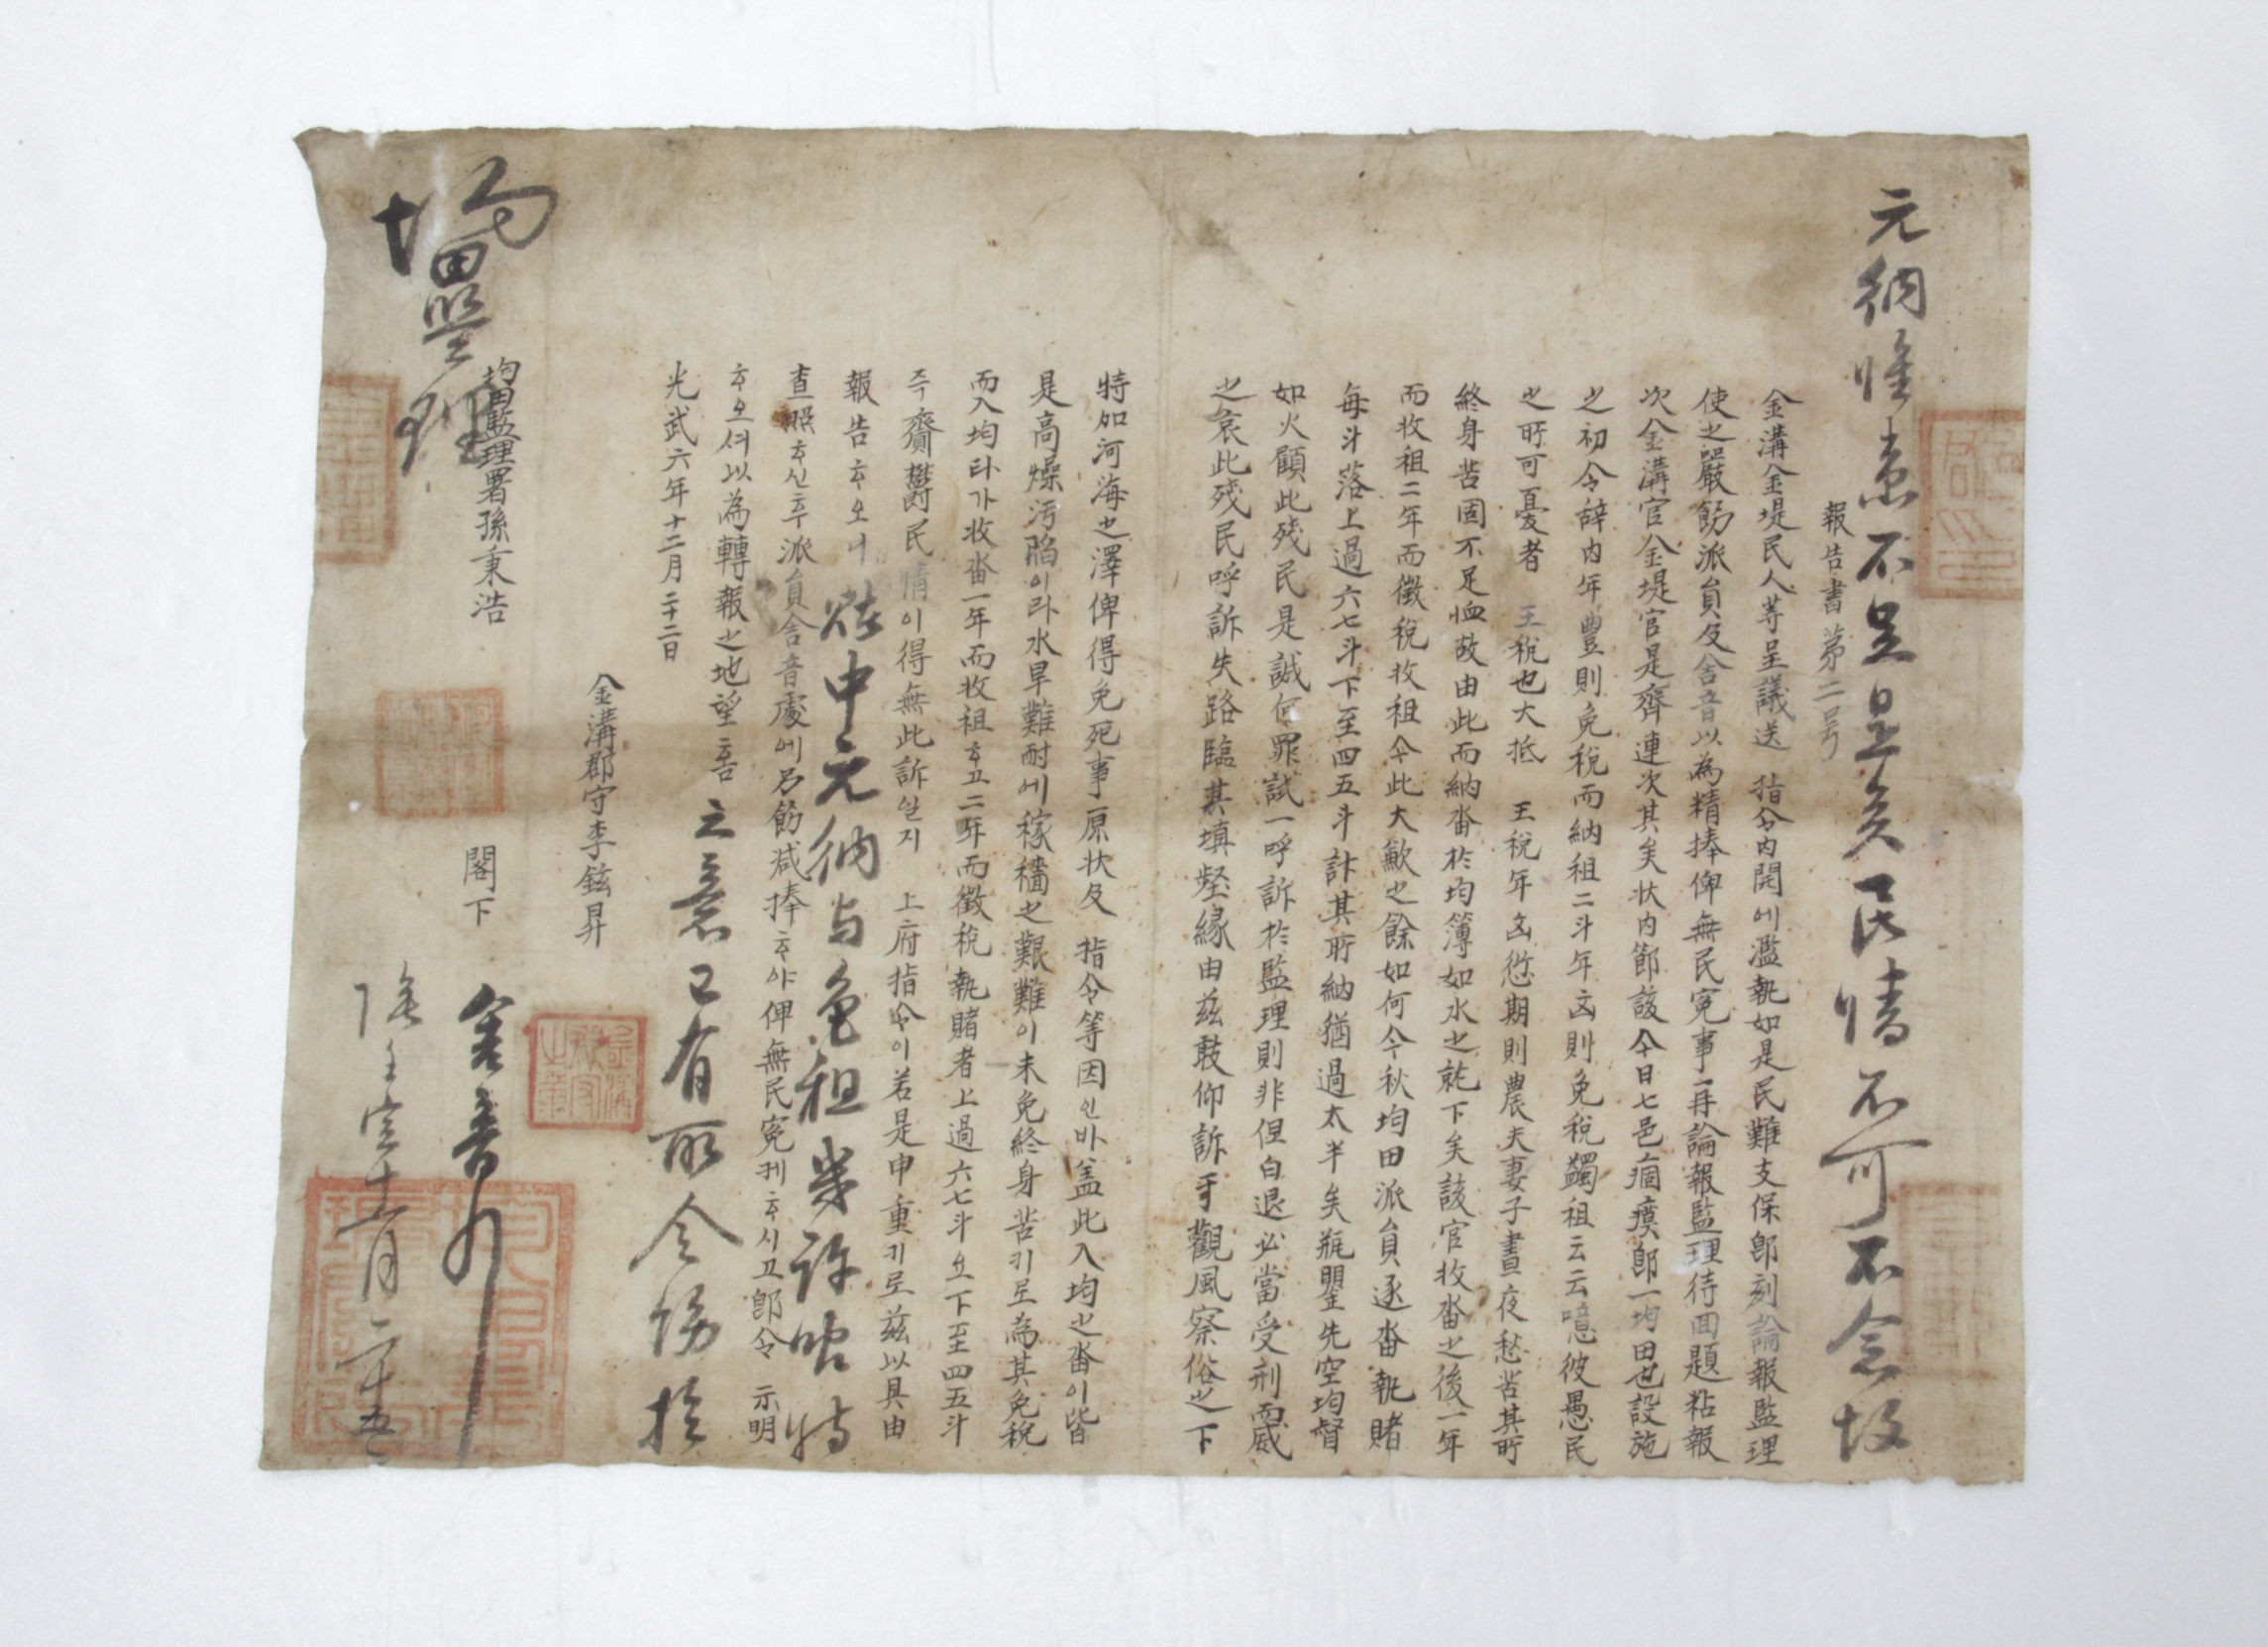 元納惟意不呈是矣民情不可不念故
報告書第二号
金溝金堤民人等呈議送 指令內開에濫執如是民難支保卽刻論報監理
使之嚴飭派員及舍音以為精捧俾無民寃事再論報監理待回題粘報
次金溝官金堤官是齊連次其矣状內節該今日七邑痼瘼卽一均田也設施
之初令辞內年豊則免稅而納祖二斗年凶則免稅蠲祖云云噫彼愚民
之所可憂者 王稅也大抵 王稅年凶愆期則農夫妻子晝夜愁苦其所
終身苦固不足恤故由此而納畓於均簿如水之就下矣該官收畓之後一年
而收祖二年而徵稅收祖今此大歉之餘如何今秋均田派員逐畓執賭
每斗落上過六七斗下至四五斗計其所納猶過太半矣甁罌先空均督
如火顧此殘民是誠何罪試一呼訴於監理則非但白退必當受刑而威
之哀此殘民呼訴失路臨其塡壑緣由玆敢仰訴于觀風察俗之下
特如河海之澤俾得免死事原状及 指令等因인바盖此入均之畓이皆
是高燥汚陷이라水旱難耐에稼穡之艱難이未免終身苦키로為其免稅
而入均타가收畓一年而收祖ᄒᆞ고二年而徵稅執賭者上過六七斗요下至四五斗
즉齎鬱民情이得無此訴일지 上府指令이若是申重키로玆以具由
報告ᄒᆞ오니
查照ᄒᆞ신후派員舍音處에另飭減捧ᄒᆞ야俾無民寃케ᄒᆞ시고卽令 示明
ᄒᆞ오셔以為轉報之地望홈
中元納与免租案許
之意已有所令飭於
光武六年十二月二十二日
金溝郡守李鉉昇
均田監理署孫秉浩 閣下
均田監理
舍音
陰壬寅十一月二十五